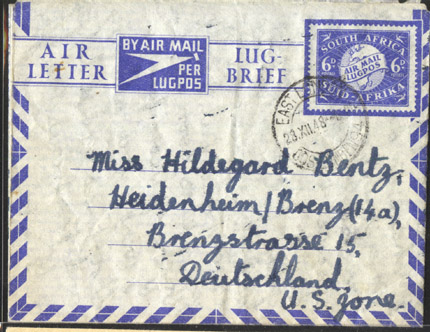 AIR
LETTER
BY AIR MAIL
PER
LUGPOS
LUG-
BRIEF
SOUTH AFRICA
6D 6D
AIR MAIL
LUGPOS
SUID-AFRIKA
EAST LONDON
23.XII.48
Miss Hildegard Bentz,
Heidenheim/Brenz(14a),
Brenzstrasse 15,
Deutschland.
U.S. Zone.